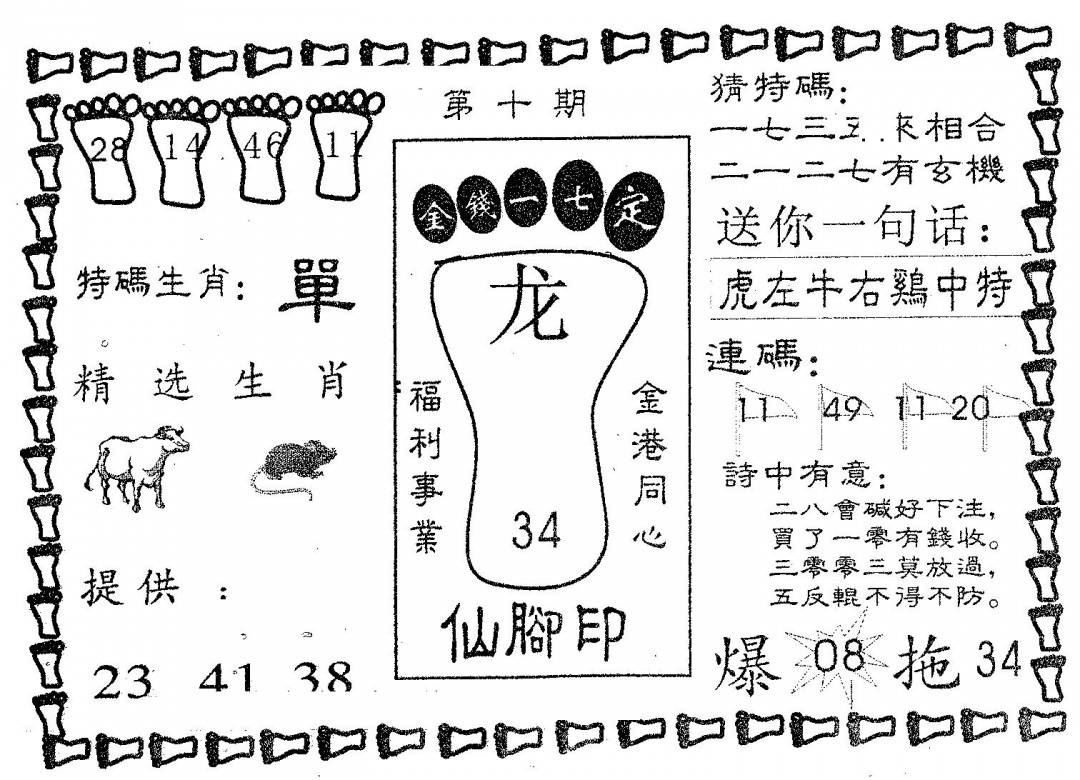 第十期
28 14 46 11
特碼生肖：單
精选生肖
提供：
23 41 38
金錢一七定
龙
福利事業
金港同心
34
仙腳印
猜特碼：
一七三五 相合
二一二七有玄機
送你一句话：
虎左牛右鷄中特
連碼：
11 49 11 20
詩中有意：
二八會碱好下注，
買了一零有錢收。
三零零三莫放過，
五反輥不得不防。
爆 08 拖 34